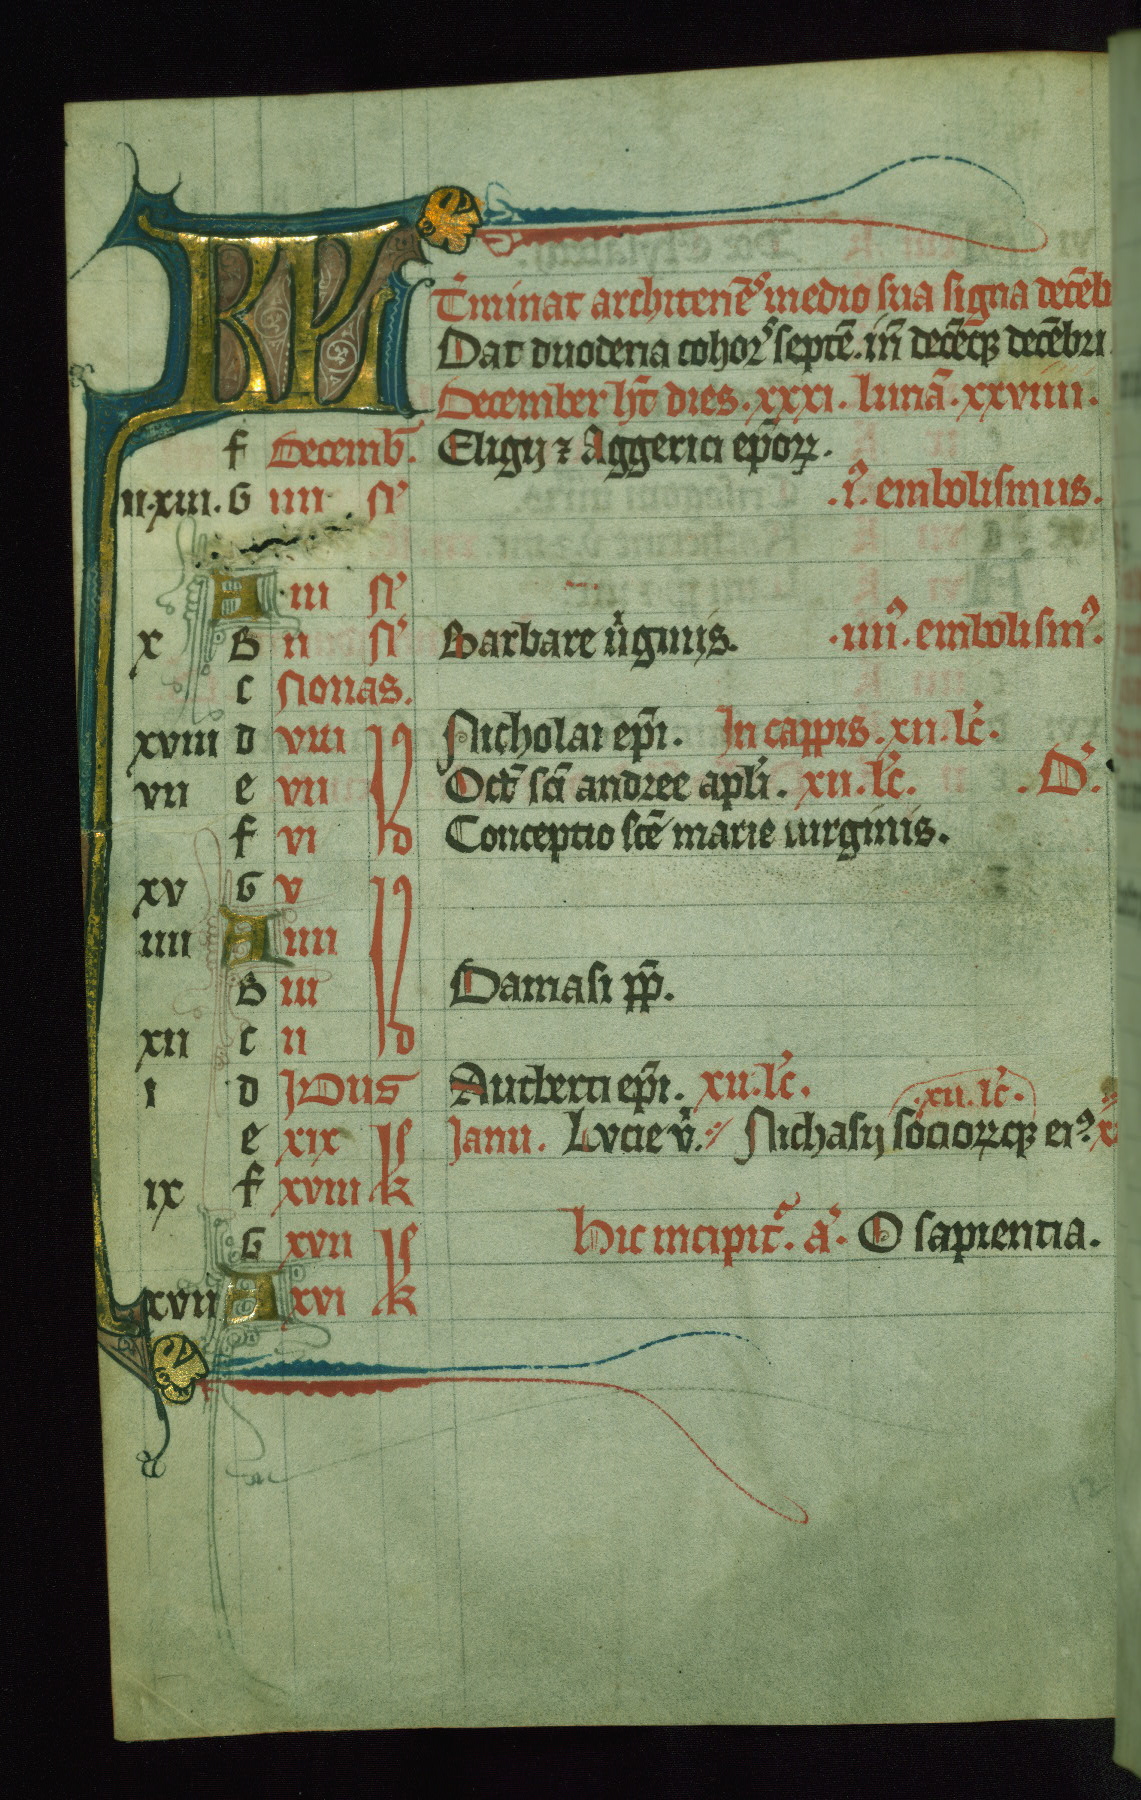 KL
T̄minat architenēs medio sua signa decēb
Dat duodena cohors septē. in̄ decēq; decēbri
December h̄t dies. xxxi. lunā. xxviiii.
f Decemb̄. Eligij ⁊ Aggerici ep̄oꝝ.
ii. xiii. G iiii N̄ .i. embolismus.
A iii N̄
x B ii N̄ Barbare v̄ginis. .iiii. embolism᾿.
c Nonas.
xviii d viii Id Nicholai ep̄i. In cappis. xii. lc̄.
vii e vii Oct̄ sc̄i andree apl̄i. xii. lc̄. .D̄.
f vi Conceptio sc̄e marie uirginis.
xv G v Id
iiii A iiii
B iii Damasi pp̄.
xii c ii
i d IDus Autberti ep̄i. xii. lc̄.
.xii. lc̄.
e xix kl Ianu. Lucie v̄. Nichasij socioꝝq; ei᾿.
ix f xviii
G xvii kl Hic incipit̄. a᾿. O sapientia.
xvii A xvi